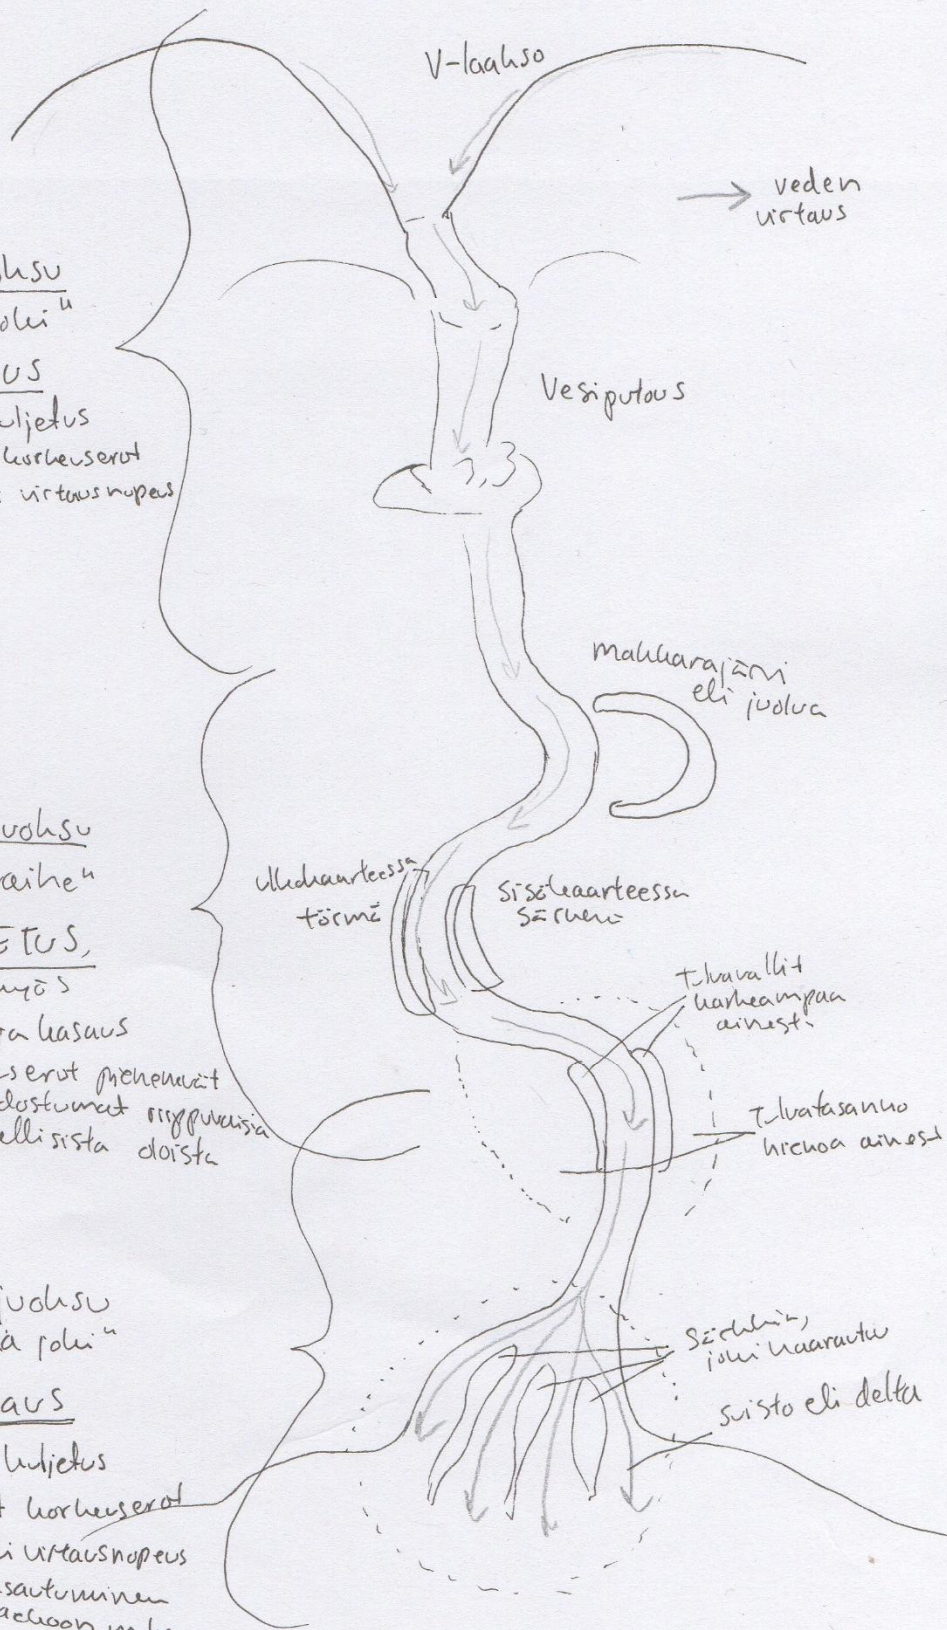 V-laakso
veden
virtaus
ohsu
oki"
US
uljetus
korkeuserot
virtausnopeus
Vesiputous
makkarajärvi
eli juolua
uoksu
aihe"
ETUS,
myös
ra kasaus
serot pienenevät
dostumat riippuvaisia
ellisista oloista
ulkokaarteessa
törmä
sisäkaarteessa
särkkä
Tulvavallit
karkeampaa
ainesta
Tulvatasanko
hienoa ainest
juoksu
ä joki"
aus
kuljetus
t korkeuserot
i virtausnopeus
sautuminen
Särkkiä,
joki haarautuu
suisto eli delta